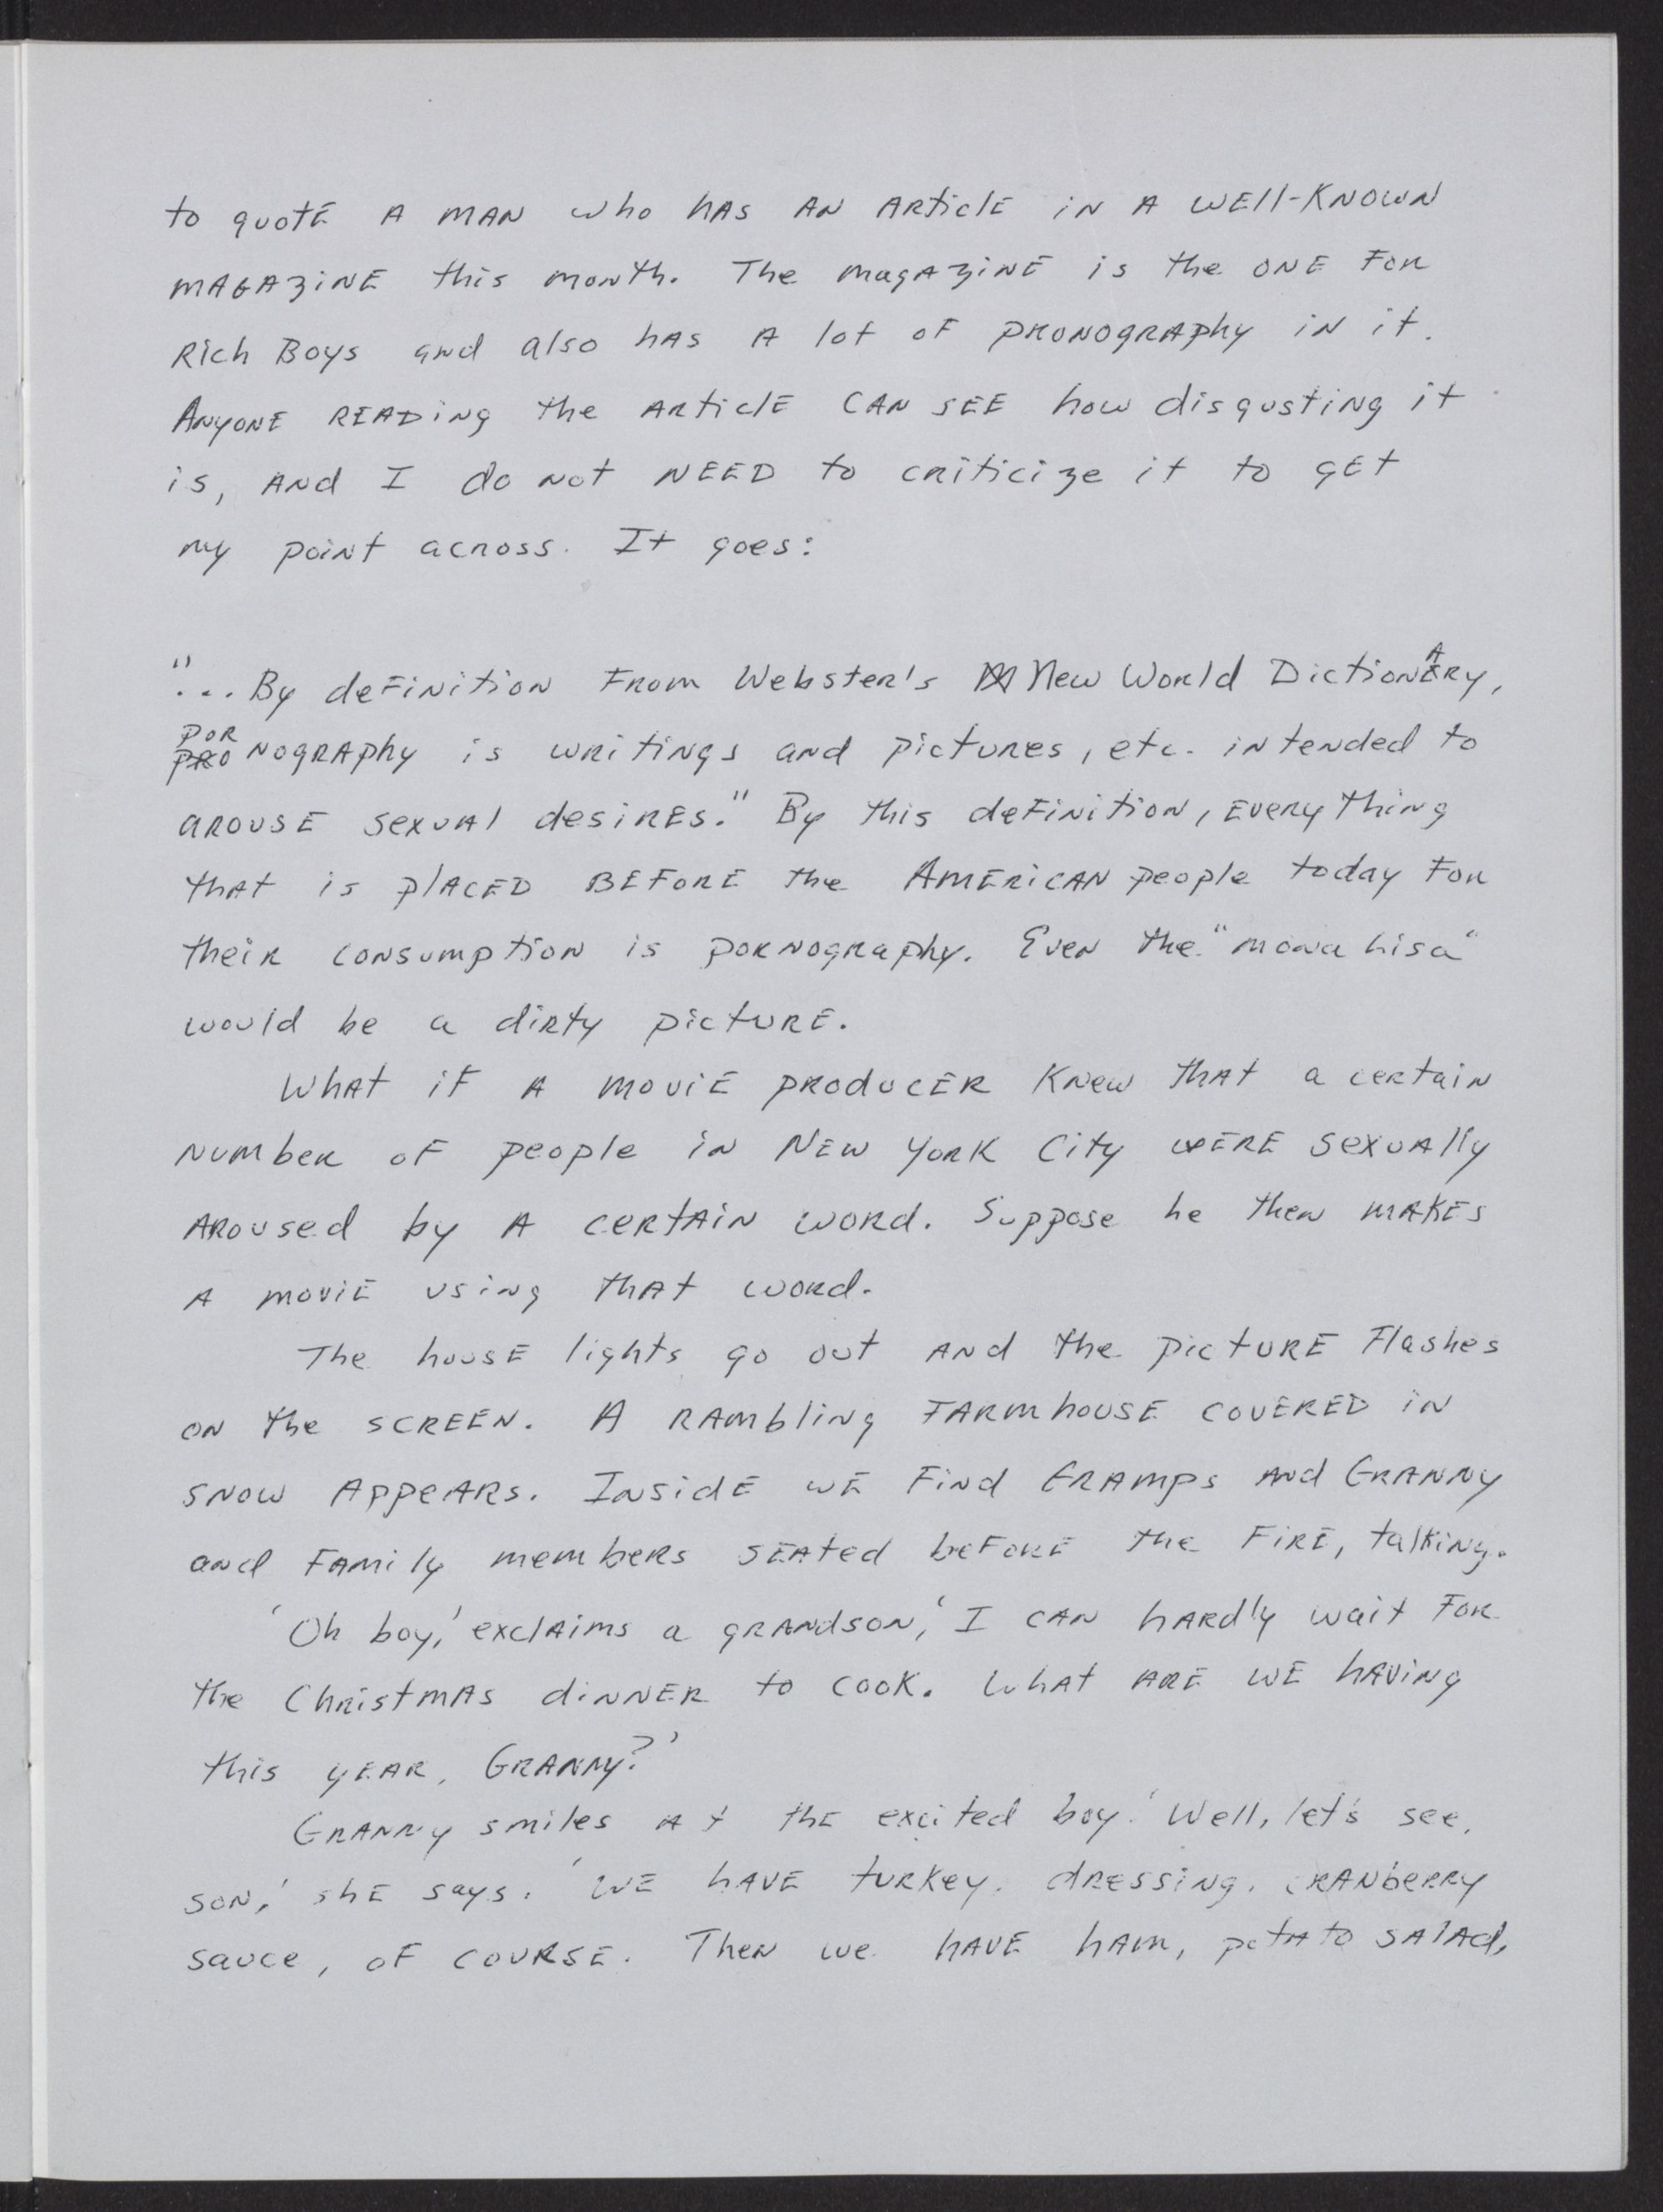 to quote A MAN who hAs AN ARticlE iN A WEll-KNOWN
MAGAziNE this month. The magAziNE is the ONE FOR
Rich Boys and also hAs A lot oF pRONOGRAphy iN it.
ANyONE READing the ARticlE CAN SEE how disgusting it
is, ANd I do not NEED to criticize it to gEt
my point across. It goes:
"... By deFiNition FRom Webster's New World DictionARy,
PORNOGRAphy is writings and pictures, etc. intended to
arousE sexuAl desiREs." By this deFiNition, EveRything
thAt is plACED BEFORE the AmERicAN people today FOR
their consumption is pornography. Even the "mona Lisa"
would be a dirty picturE.
WhAt iF A moviE pRoducER Knew thAt a certain
number oF people in NEW YORK City wERE sexuAlly
ARoused by A cERtAiN word. Suppose he then mAKEs
A moviE using thAt word.
The housE lights go out ANd the pictURE Flashes
ON the SCREEN. A RAmbling FARmhousE COVERED iN
SNOW AppeARs. InsidE wE FiNd GRAmps ANd GRANNy
and FAmily members sEAted beForE the FiRE, talking.
'Oh boy,' exclAims a gRANdson, 'I CAN hARdly wait FOR
the ChristmAs diNNER to cook. WhAt ARE WE hAViNg
this yEAR, GRANNy?'
GRANNy smiles At thE excited boy. 'Well, let's see,
soN,' shE says. 'WE hAVE turkey, dRessing, cRANbeRRy
sauce, oF couRsE. Then we hAVE hAm, potAto sAlAd,